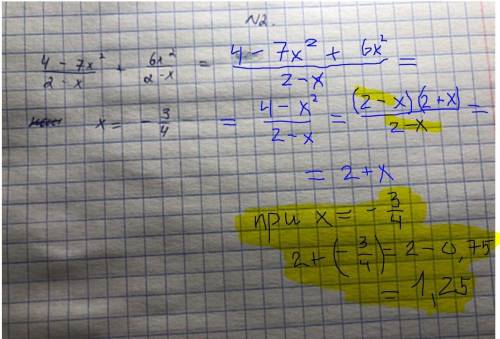 №2.
(4 - 7x²)/(2 - x) + 6x²/(2 - x) = (4 - 7x² + 6x²)/(2 - x) =
x = - 3/4 = (4 - x²)/(2 - x) = (2 - x)(2 + x)/(2 - x) =
= 2 + x
при x = - 3/4
2 + (- 3/4) = 2 - 0,75
= 1,25